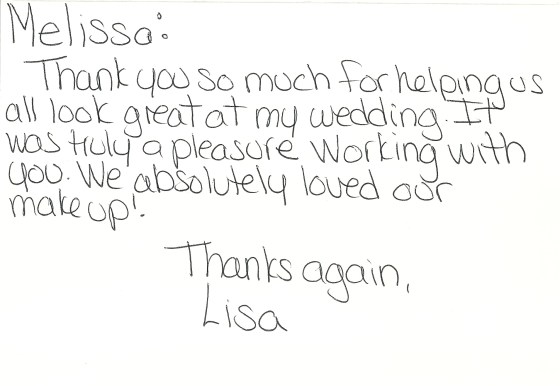 Melissa:
Thank you so much for helping us
all look great at my wedding. It
was truly a pleasure working with
you. We absolutely loved our
makeup!
Thanks again,
Lisa